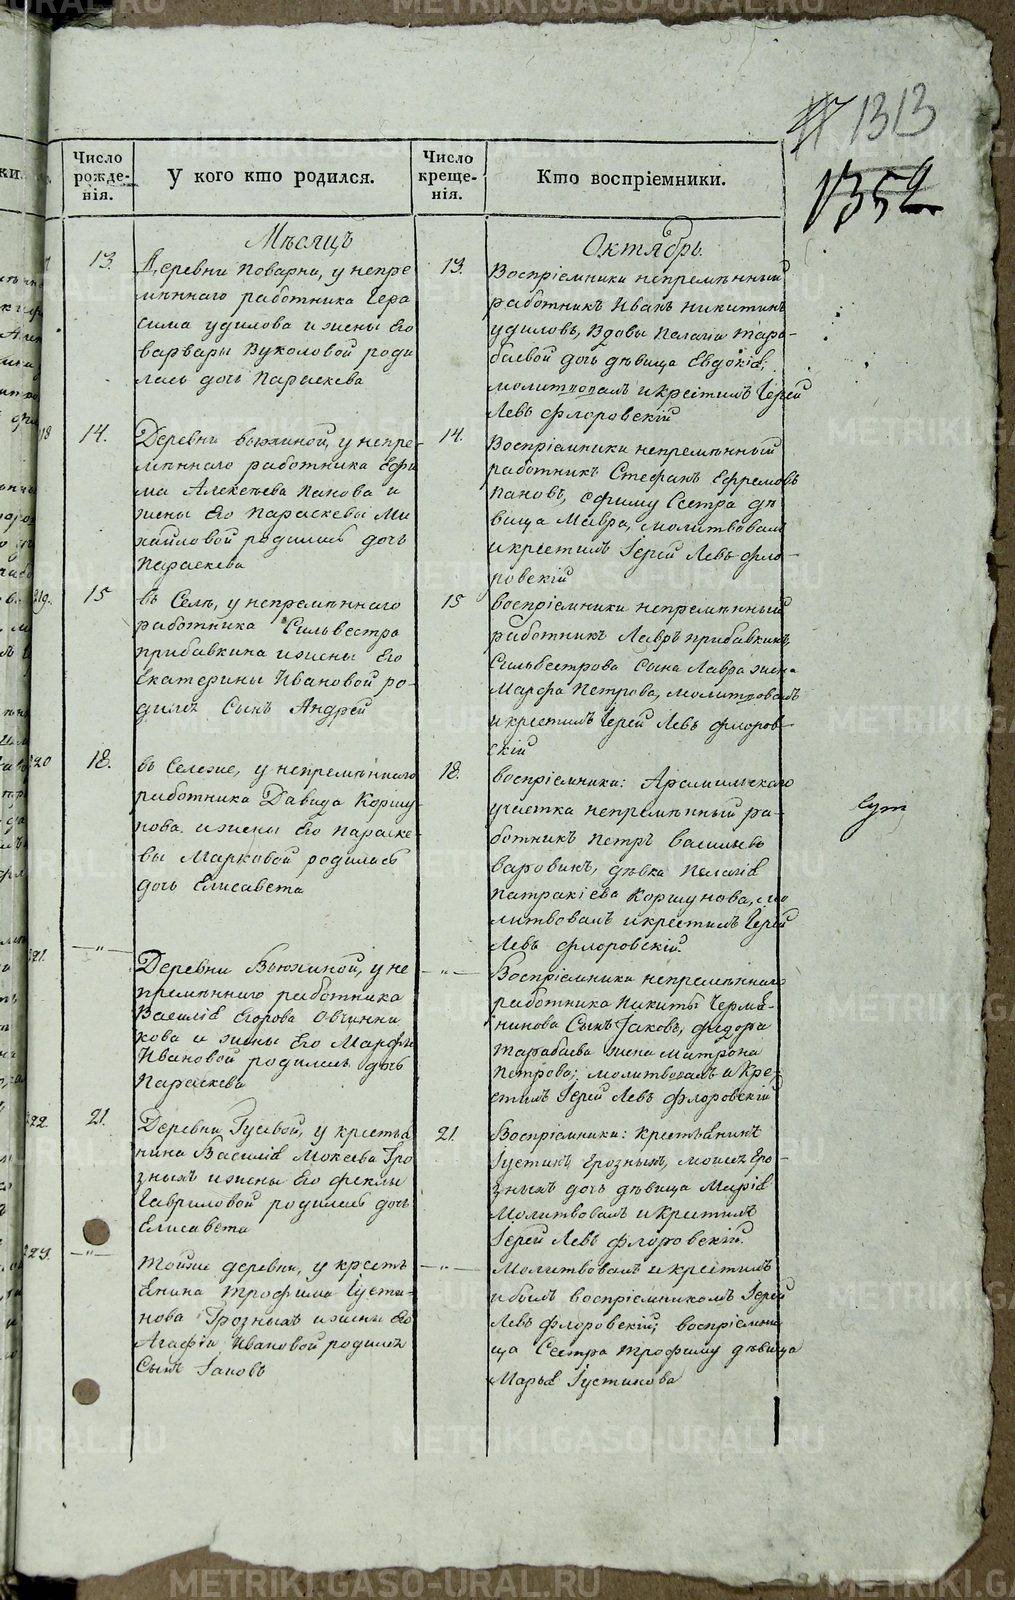 1313
1352
Число рожде-нія.
У кого кто родился.
Число креще-нія.
Кто воспріемники.
Мѣсяцъ
Октябрь.
13.
Деревни Поварни, у непре
мѣннаго работника Гера
сима Удилова и жены его
Варвары Вуколовой роди
лась дочь Параскева
13.
Воспріемники непремѣнный
работникъ Иванъ Никитинъ
Удиловъ, вдовы Пелагіи Тара-
баевой дочь дѣвица Евдокія;
молитвовалъ и крестилъ Іерей
Левъ Флоровскій
18
14.
Деревни Вьюхиной, у непре-
мѣннаго работника Ефи
ма Алексѣева Панова и
жены его Параскевы Ми
хайловой родилась дочь
Параскева
14.
Воспріемники непремѣнный
работникъ Стефанъ Ефремовъ
Пановъ, Ефиму сестра дѣ
вица Мавра, молитвовалъ
и крестилъ Іерей Левъ Фло-
ровскій
219.
15
въ Селѣ, у непремѣннаго
работника Сильвестра
Прибавкина и жены его
Екатерины Ивановой ро-
дился сынъ Андрей
15
воспріемники непремѣнный
работникъ Лавръ Прибавкинъ,
Сильвестрова сына Лавра жена
Марфа Петрова, молитвовалъ
и крестилъ Іерей Левъ Флоров-
скій
220
18.
въ Селе же, у непремѣннаго
работника Давида Коршу
нова и жены его Параске-
вы Марковой родилась
дочь Елисавета
18.
воспріемники: Арамильскаго
участка непремѣнный ра-
ботникъ Петръ Васильевъ
Варовинъ, дѣвка Пелагія
Патракіева Коршунова, мо
литвовалъ и крестилъ Іерей
Левъ Флоровскій.
221.
—"—
Деревни Вьюхиной, у не
премѣннаго работника
Василія Егорова Овчинни
кова и жены его Марфы
Ивановой родилась дочь
Параскева
—"—
Воспріемники непремѣннаго
работника Никиты Черма-
нинова сынъ Іаковъ, Федора
Тарабаева жена Матрона
Петрова; молитвовалъ и кре-
стилъ Іерей Левъ Флоровскій
222
21.
Деревни Гусевой, у крестья
нина Василія Мокеева Гро
зныхъ и жены его Феклы
Гавриловой родилась дочь
Елисавета
21.
Воспріемники: крестьянинъ
Іустинъ Грозныхъ, Моисея Гро-
зныхъ дочь дѣвица Марія
Молитвовалъ и крестилъ
Іерей Левъ Флоровскій.
223.
—"—
Той же деревни, у кресть
янина Трофима Іусти-
нова Грозныхъ и жены его
Агафіи Ивановой родился
сынъ Іаковъ
—"—
Молитвовалъ и крестилъ
и былъ воспріемникомъ Іерей
Левъ Флоровскій; воспріемни
ца сестра Трофиму дѣвица
Марья Іустинова
METRIKI.GASO-URAL.RU